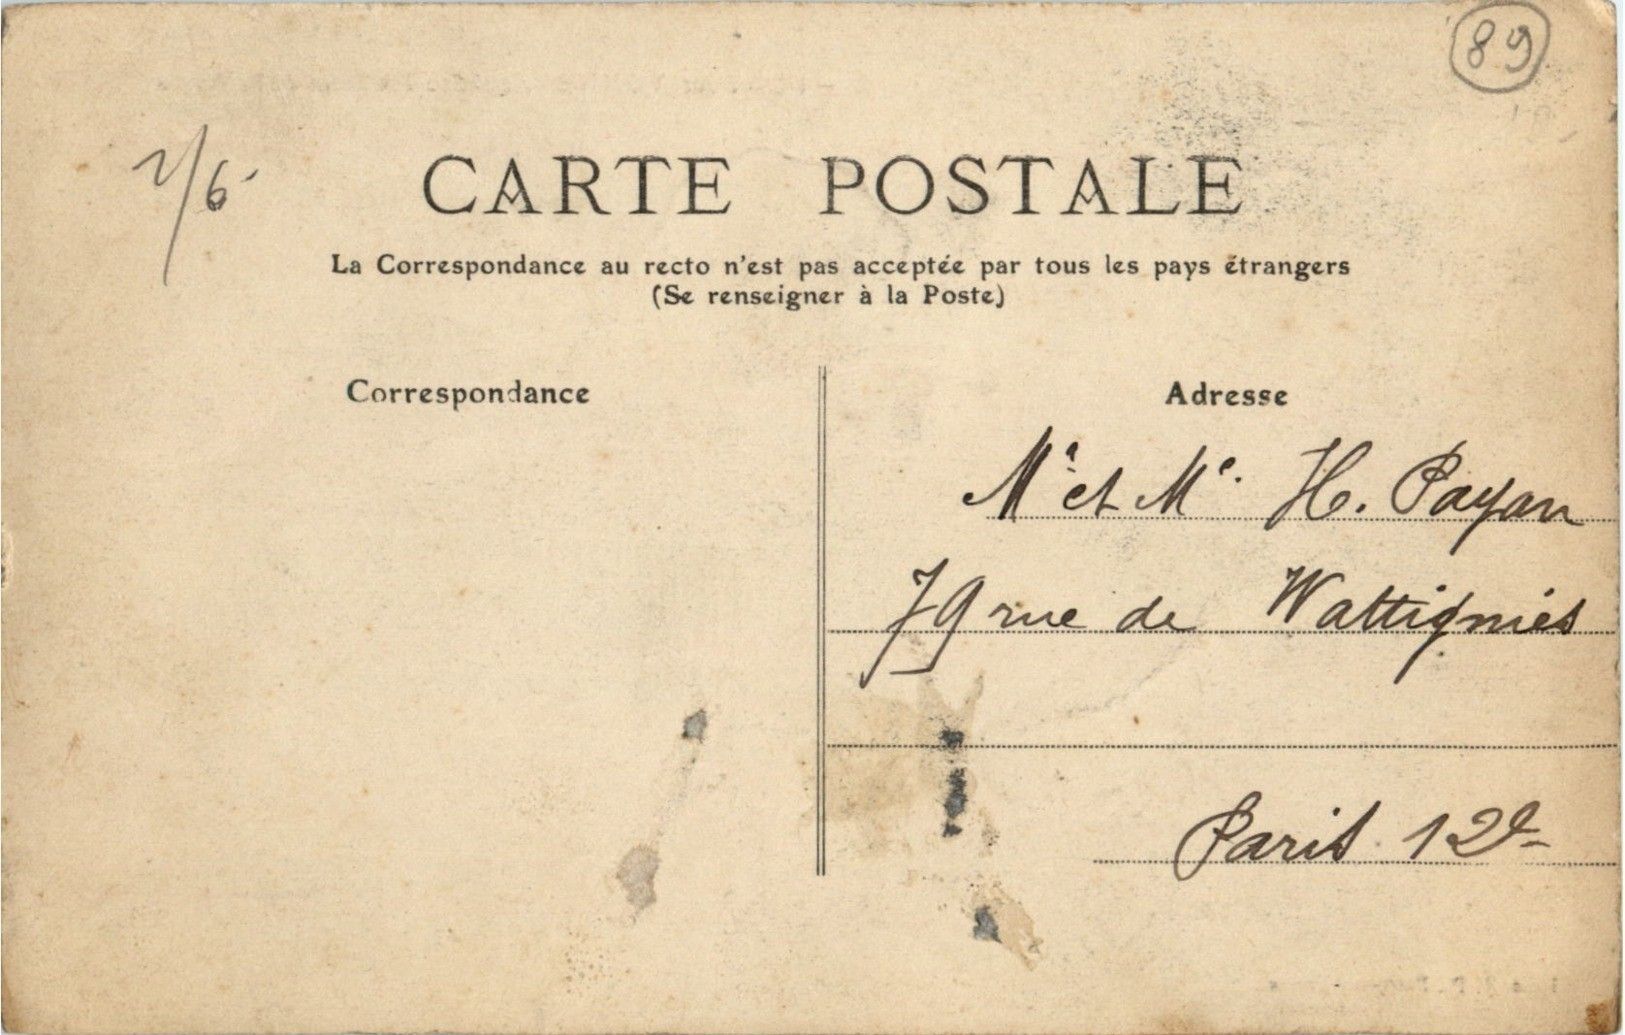 89
2/6
CARTE POSTALE
La Correspondance au recto n'est pas acceptée par tous les pays étrangers
(Se renseigner à la Poste)
Correspondance
Adresse
Mr et Me. H. Payan
79 rue de Wattignies
Paris 12e